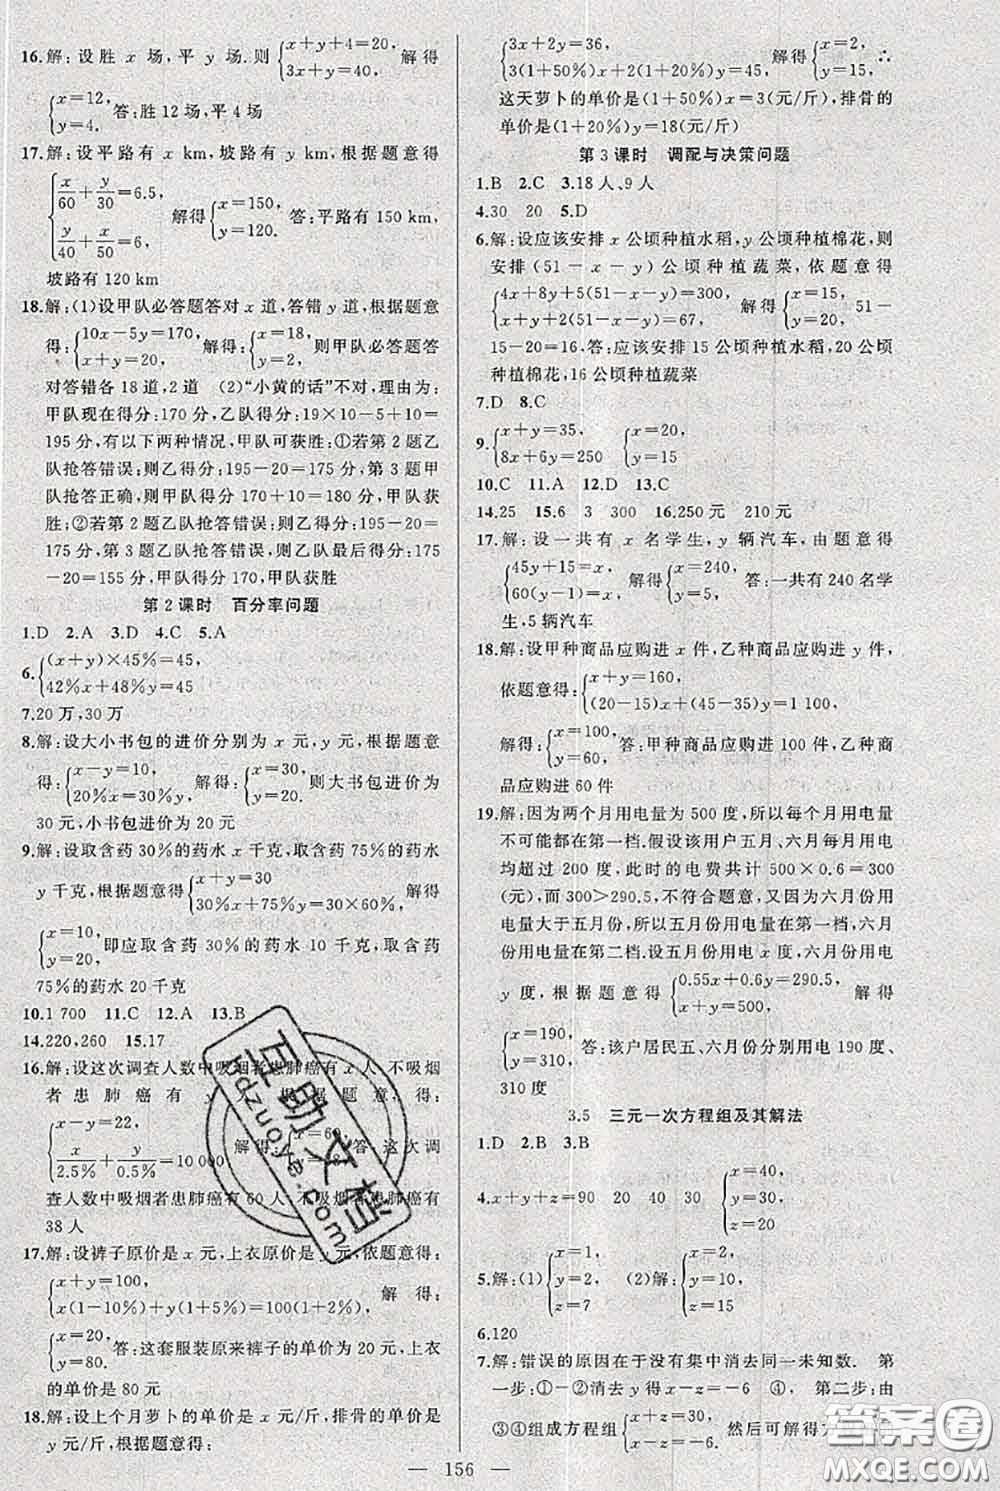 16.解:设胜 x 场,平 y 场.则{x+y+4=20, 3x+y=40, 解得
{x=12, y=4. 答:胜 12 场,平 4 场
17.解:设平路有 x km,坡路有 y km,根据题意得
{x/60+y/30=6.5, x/40+y/50=6, 解得{x=150, y=120. 答:平路有 150 km,
坡路有 120 km
18.解:(1)设甲队必答题答对 x 道,答错 y 道,根据题意
得:{10x-5y=170, x+y=20, 解得:{x=18, y=2, 则甲队必答题答
对答错各 18 道,2 道 (2)“小黄的话”不对,理由为:
甲队现在得分:170 分,乙队得分:19×10-5+10=
195 分,有以下两种情况,甲队可获胜:①若第 2 题乙
队抢答错误;则乙得分:195-20=175 分,第 3 题甲队
抢答正确,则甲得分:170+10=180 分,甲队获
胜;②若第 2 题乙队抢答错误;则乙队得分:195-20=
175 分,第 3 题乙队抢答错误,则乙队最后得分:175
-20=155 分,甲队得分 170,甲队获胜
第 2 课时 百分率问题
1.D 2.A 3.D 4.C 5.A
6.{(x+y)×45%=45, 42%x+48%y=45
7.20 万,30 万
8.解:设大小书包的进价分别为 x 元,y 元,根据题意
得:{x-y=10, 20%x=30%y. 解得:{x=30, y=20. 则大书包进价为
30 元,小书包进价为 20 元
9.解:设取含药 30%的药水 x 千克,取含药 75%的药水
y 千克,根据题意得{x+y=30 30%x+75%y=30×60% 解得
{x=10, y=20, 即应取含药 30%的药水 10 千克,取含药
75%的药水 20 千克
10.1 700 11.C 12.A 13.B
14.220,260 15.17
16.解:设这次调查人数中吸烟者患肺癌有 x 人 不吸烟
者患肺癌有 y 根据题意,得:
{x-y=22, x/2.5%+y/0.5%=10 000 解得:{x=60, 答 这次调
查人数中吸烟者患肺癌有 60 人,不吸烟者患肺癌有
38 人
17.解:设裤子原价是 x 元,上衣原价是 y 元,依题意得:
{x+y=100, x(1-10%)+y(1+5%)=100(1+2%). 解得:
{x=20, y=80. 答:这套服装原来裤子的单价为 20 元,上衣
的单价是 80 元
18.解:设上个月萝卜的单价是 x 元/斤,排骨的单价是
y 元/斤,根据题意得:
{3x+2y=36, 3(1+50%)x+2(1+20%)y=45, 解得:{x=2, y=15, ∴
这天萝卜的单价是(1+50%)x=3(元/斤),排骨的
单价是(1+20%)y=18(元/斤)
第 3 课时 调配与决策问题
1.B 2.C 3.18 人、9 人
4.30 20 5.D
6.解:设应该安排 x 公顷种植水稻,y 公顷种植棉花,则
安排(51-x-y)公顷种植蔬菜,依题意得
{4x+8y+5(51-x-y)=300, x+y+2(51-x-y)=67, 解得{x=15, y=20, 51-
15-20=16 答:应该安排 15 公顷种植水稻,20 公顷
种植棉花,16 公顷种植蔬菜
7.D 8.C
9.{x+y=35, 8x+6y=250 {x=20, y=15
10.C 11.A 12.D 13.C
14.25 15.6 3 300 16.250 元 210 元
17.解:设一共有 x 名学生,y 辆汽车,由题意得
{45y+15=x, 60(y-1)=x, 解得{x=240, y=5, 答:一共有 240 名学
生,5 辆汽车
18.解:设甲种商品应购进 x 件,乙种商品应购进 y 件,
依题意得:{x+y=160, (20-15)x+(45-35)y=1 100,
解得:{x=100, y=60, 答:甲种商品应购进 100 件,乙种商
品应购进 60 件
19.解:因为两个月用电量为 500 度,所以每个月用电量
不可能都在第一档.假设该用户五月、六月每月用电
均超过 200 度,此时的电费共计 500×0.6=300
(元),而 300>290.5,不符合题意,又因为六月份用
电量大于五月份,所以五月份用电量在第一档,六月
份用电量在第二档.设五月份用电 x 度,六月份用电
y 度,根据题意得{0.55x+0.6y=290.5, x+y=500, 解得
{x=190, y=310, 答:该户居民五、六月份分别用电 190 度、
310 度
3.5 三元一次方程组及其解法
1.D 2.B 3.B
4.x+y+z=90 20 40 30 {x=40, y=30, z=20
5.解:(1){x=1, y=2, z=7 (2)解:{x=5, y=10, z=15
6.120
7.解:错误的原因在于没有集中消去同一未知数. 第
一步:①-②消去 y 得 x-z=-6 ④, 第二步:由
③④组成方程组{x-z=-6. 然后可解得
— 156 —
互助文档
hdzuoye.com
答案圈
MXQE.COM